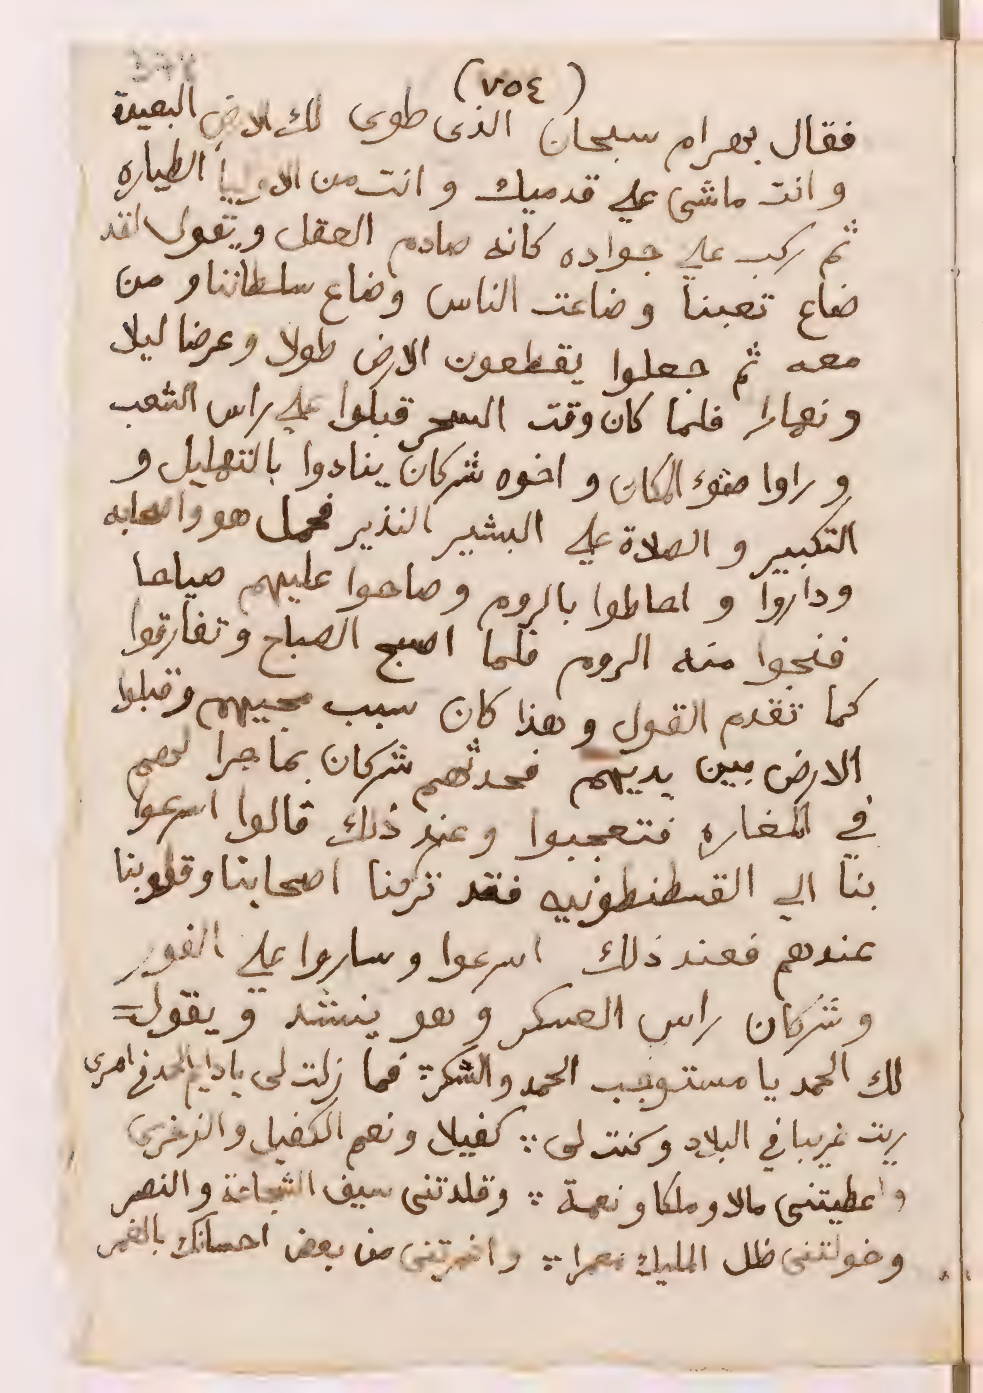 (٧٥٤)
فقال بهرام سبحان الذى طوى لك الارض البعيدة
و انت ماشى علي قدميك و انت من الاوليا الطياره
ثم ركب علي جواده كانه صادم العقل ويقول لقد
ضاع تعبنا و ضاعت الناس وضاع سلطاننا و من
معه ثم جعلوا يقطعون الارض طولا وعرضا ليلا
و نهارا فلما كان وقت السحر قبلوا علي راس الشعب
و راوا ضوء المكان و اخوه شركان ينادوا بالتهليل و
التكبير و الصلاة علي البشير النذير فحمل هو واصحابه
وداروا و احاطوا بالروم وصاحوا عليهم صياحا
فنجوا منه الروم فلما اصبح الصباح وتفارقوا
كما تقدم القول و هذا كان سبب مجييهم وقبلوا
الارض بين يديهم فحدثهم شركان بما جرا لهم
في المغاره فتعجبوا وعند ذلك قالوا اسرعوا
بنا الي القسطنطونيه فقد تركنا اصحابنا وقلوبنا
عندهم فعند ذلك اسرعوا وساروا علي الفور
و شركان راس العسكر و هو ينشد و يقول =
لك الحمد يا مستوجب الحمد والشكر ؞ فما زلت لى يا دايم الحمد في امرى
ربيت غريبا في البلاد وكنت لى ؞ كفيلا ونعم الكفيل و
واعطيتنى مالا وملكا ونعمة ؞ وقلدتنى سيف الشجاعة والنصر
وخولتنى ظل المليك معمرا ؞ و من بعض احسانك بالغمر